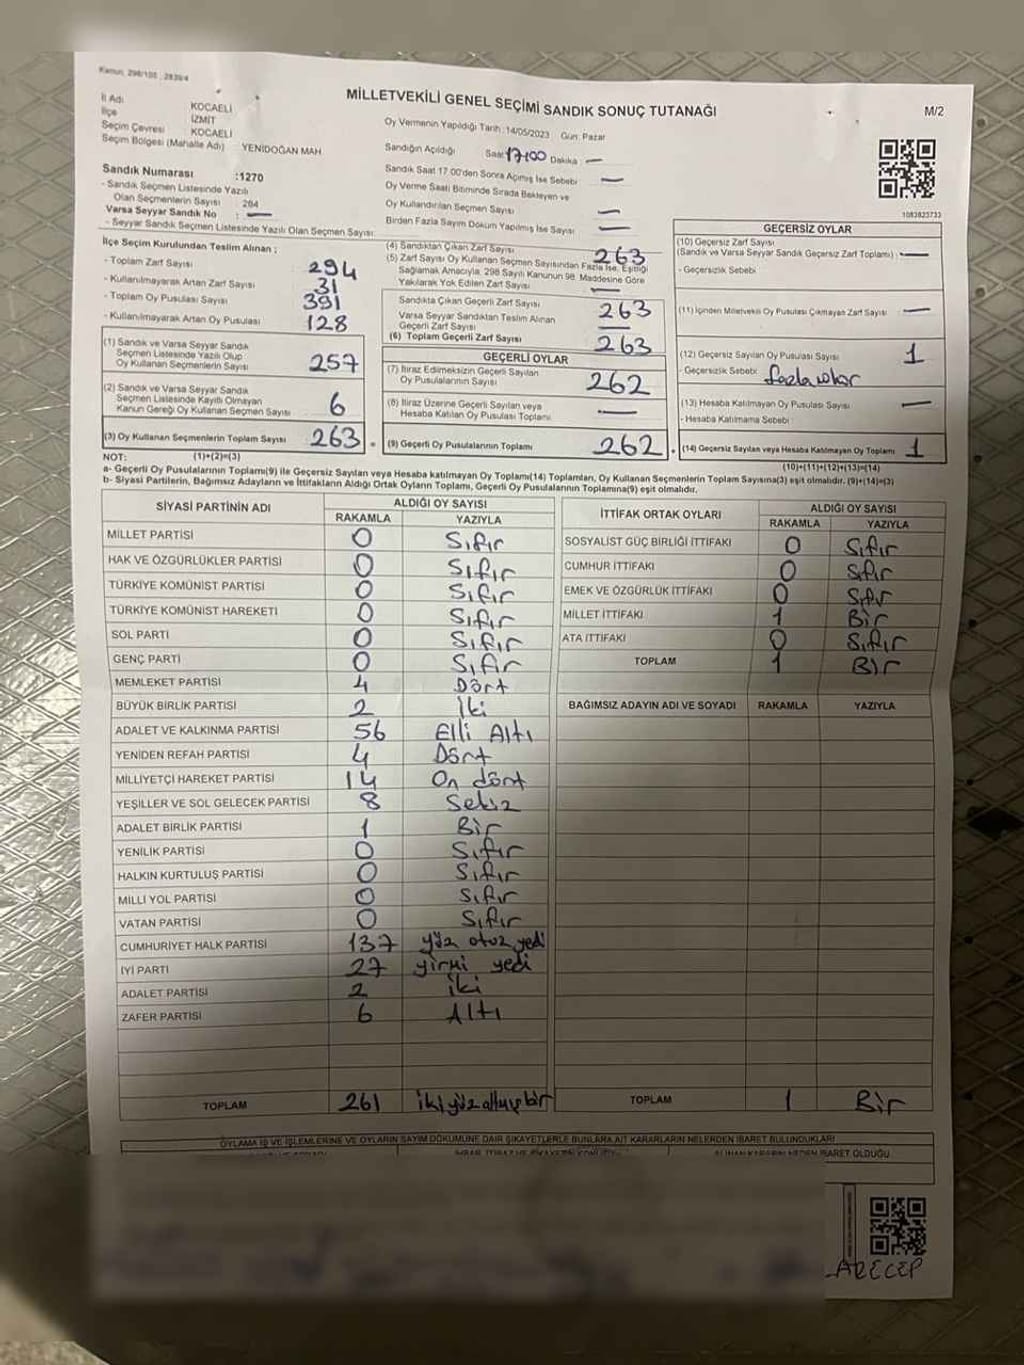 Kanun, 298/105 , 2839/4
MİLLETVEKİLİ GENEL SEÇİMİ SANDIK SONUÇ TUTANAĞI
M/2
İl Adı KOCAELİ
İlçe İZMİT
Seçim Çevresi KOCAELİ
Seçim Bölgesi (Mahalle Adı) YENİDOĞAN MAH.
Sandık Numarası :1270
- Sandık Seçmen Listesinde Yazılı
Olan Seçmenlerin Sayısı 264
Varsa Seyyar Sandık No : —
- Seyyar Sandık Seçmen Listesinde Yazılı Olan Seçmen Sayısı:
Oy Vermenin Yapıldığı Tarih :14/05/2023 Gün: Pazar
Sandığın Açıldığı Saat 17:00 Dakika : —
Sandık Saat 17.00'den Sonra Açılmış İse Sebebi —
Oy Verme Saati Bitiminde Sırada Bekleyen ve
Oy Kullandırılan Seçmen Sayısı —
Birden Fazla Sayım Döküm Yapılmış İse Sayısı —
1083823733
İlçe Seçim Kurulundan Teslim Alınan ;
- Toplam Zarf Sayısı 294
- Kullanılmayarak Artan Zarf Sayısı 31
- Toplam Oy Pusulası Sayısı 391
- Kullanılmayarak Artan Oy Pusulası 128
(1) Sandık ve Varsa Seyyar Sandık
Seçmen Listesinde Yazılı Olup
Oy Kullanan Seçmenlerin Sayısı 257
(2) Sandık ve Varsa Seyyar Sandık
Seçmen Listesinde Kayıtlı Olmayan
Kanun Gereği Oy Kullanan Seçmen Sayısı 6
(3) Oy Kullanan Seçmenlerin Toplam Sayısı 263
(4) Sandıktan Çıkan Zarf Sayısı 263
(5) Zarf Sayısı Oy Kullanan Seçmen Sayısından Fazla İse, Eşitliği
Sağlamak Amacıyla, 298 Sayılı Kanunun 98. Maddesine Göre
Yakılarak Yok Edilen Zarf Sayısı —
Sandıkta Çıkan Geçerli Zarf Sayısı 263
Varsa Seyyar Sandıktan Teslim Alınan
Geçerli Zarf Sayısı —
(6) Toplam Geçerli Zarf Sayısı 263
GEÇERLİ OYLAR
(7) İtiraz Edilmeksizin Geçerli Sayılan
Oy Pusulalarının Sayısı 262
(8) İtiraz Üzerine Geçerli Sayılan veya
Hesaba Katılan Oy Pusulası Toplamı —
(9) Geçerli Oy Pusulalarının Toplamı 262
GEÇERSİZ OYLAR
(10) Geçersiz Zarf Sayısı
(Sandık ve Varsa Seyyar Sandık Geçersiz Zarf Toplamı) : —
- Geçersizlik Sebebi
(11) İçinden Milletvekili Oy Pusulası Çıkmayan Zarf Sayısı —
(12) Geçersiz Sayılan Oy Pusulası Sayısı 1
- Geçersizlik Sebebi
(13) Hesaba Katılmayan Oy Pusulası Sayısı —
- Hesaba Katılmama Sebebi :
(14) Geçersiz Sayılan veya Hesaba Katılmayan Oy Toplamı 1
NOT: (1)+(2)=(3)
(10)+(11)+(12)+(13)=(14)
a- Geçerli Oy Pusulalarının Toplamı(9) ile Geçersiz Sayılan veya Hesaba katılmayan Oy Toplamı(14) Toplamları, Oy Kullanan Seçmenlerin Toplam Sayısına(3) eşit olmalıdır. (9)+(14)=(3)
b- Siyasi Partilerin, Bağımsız Adayların ve İttifakların Aldığı Ortak Oyların Toplamı, Geçerli Oy Pusulalarının Toplamına(9) eşit olmalıdır.
SİYASİ PARTİNİN ADI ALDIĞI OY SAYISI
RAKAMLA YAZIYLA
MİLLET PARTİSİ 0 Sıfır
HAK VE ÖZGÜRLÜKLER PARTİSİ 0 Sıfır
TÜRKİYE KOMÜNİST PARTİSİ 0 Sıfır
TÜRKİYE KOMÜNİST HAREKETİ 0 Sıfır
SOL PARTİ 0 Sıfır
GENÇ PARTİ 0 Sıfır
MEMLEKET PARTİSİ 4 Dört
BÜYÜK BİRLİK PARTİSİ 2 İki
ADALET VE KALKINMA PARTİSİ 56 Elli Altı
YENİDEN REFAH PARTİSİ 4 Dört
MİLLİYETÇİ HAREKET PARTİSİ 14 On dört
YEŞİLLER VE SOL GELECEK PARTİSİ 8 Sekiz
ADALET BİRLİK PARTİSİ 1 Bir
YENİLİK PARTİSİ 0 Sıfır
HALKIN KURTULUŞ PARTİSİ 0 Sıfır
MİLLİ YOL PARTİSİ 0 Sıfır
VATAN PARTİSİ 0 Sıfır
CUMHURİYET HALK PARTİSİ 137 yüz otuz yedi
İYİ PARTİ 27 yirmi yedi
ADALET PARTİSİ 2 iki
ZAFER PARTİSİ 6 Altı
TOPLAM 261 iki yüz altmış bir
İTTİFAK ORTAK OYLARI ALDIĞI OY SAYISI
RAKAMLA YAZIYLA
SOSYALİST GÜÇ BİRLİĞİ İTTİFAKI 0 Sıfır
CUMHUR İTTİFAKI 0 Sıfır
EMEK VE ÖZGÜRLÜK İTTİFAKI 0 Sıfır
MİLLET İTTİFAKI 1 Bir
ATA İTTİFAKI 0 Sıfır
TOPLAM 1 Bir
BAĞIMSIZ ADAYIN ADI VE SOYADI RAKAMLA YAZIYLA
TOPLAM 1 Bir
OYLAMA İŞ VE İŞLEMLERİNE VE OYLARIN SAYIM DÖKÜMÜNE DAİR ŞİKAYETLERLE BUNLARA AİT KARARLARIN NELERDEN İBARET BULUNDUKLARI